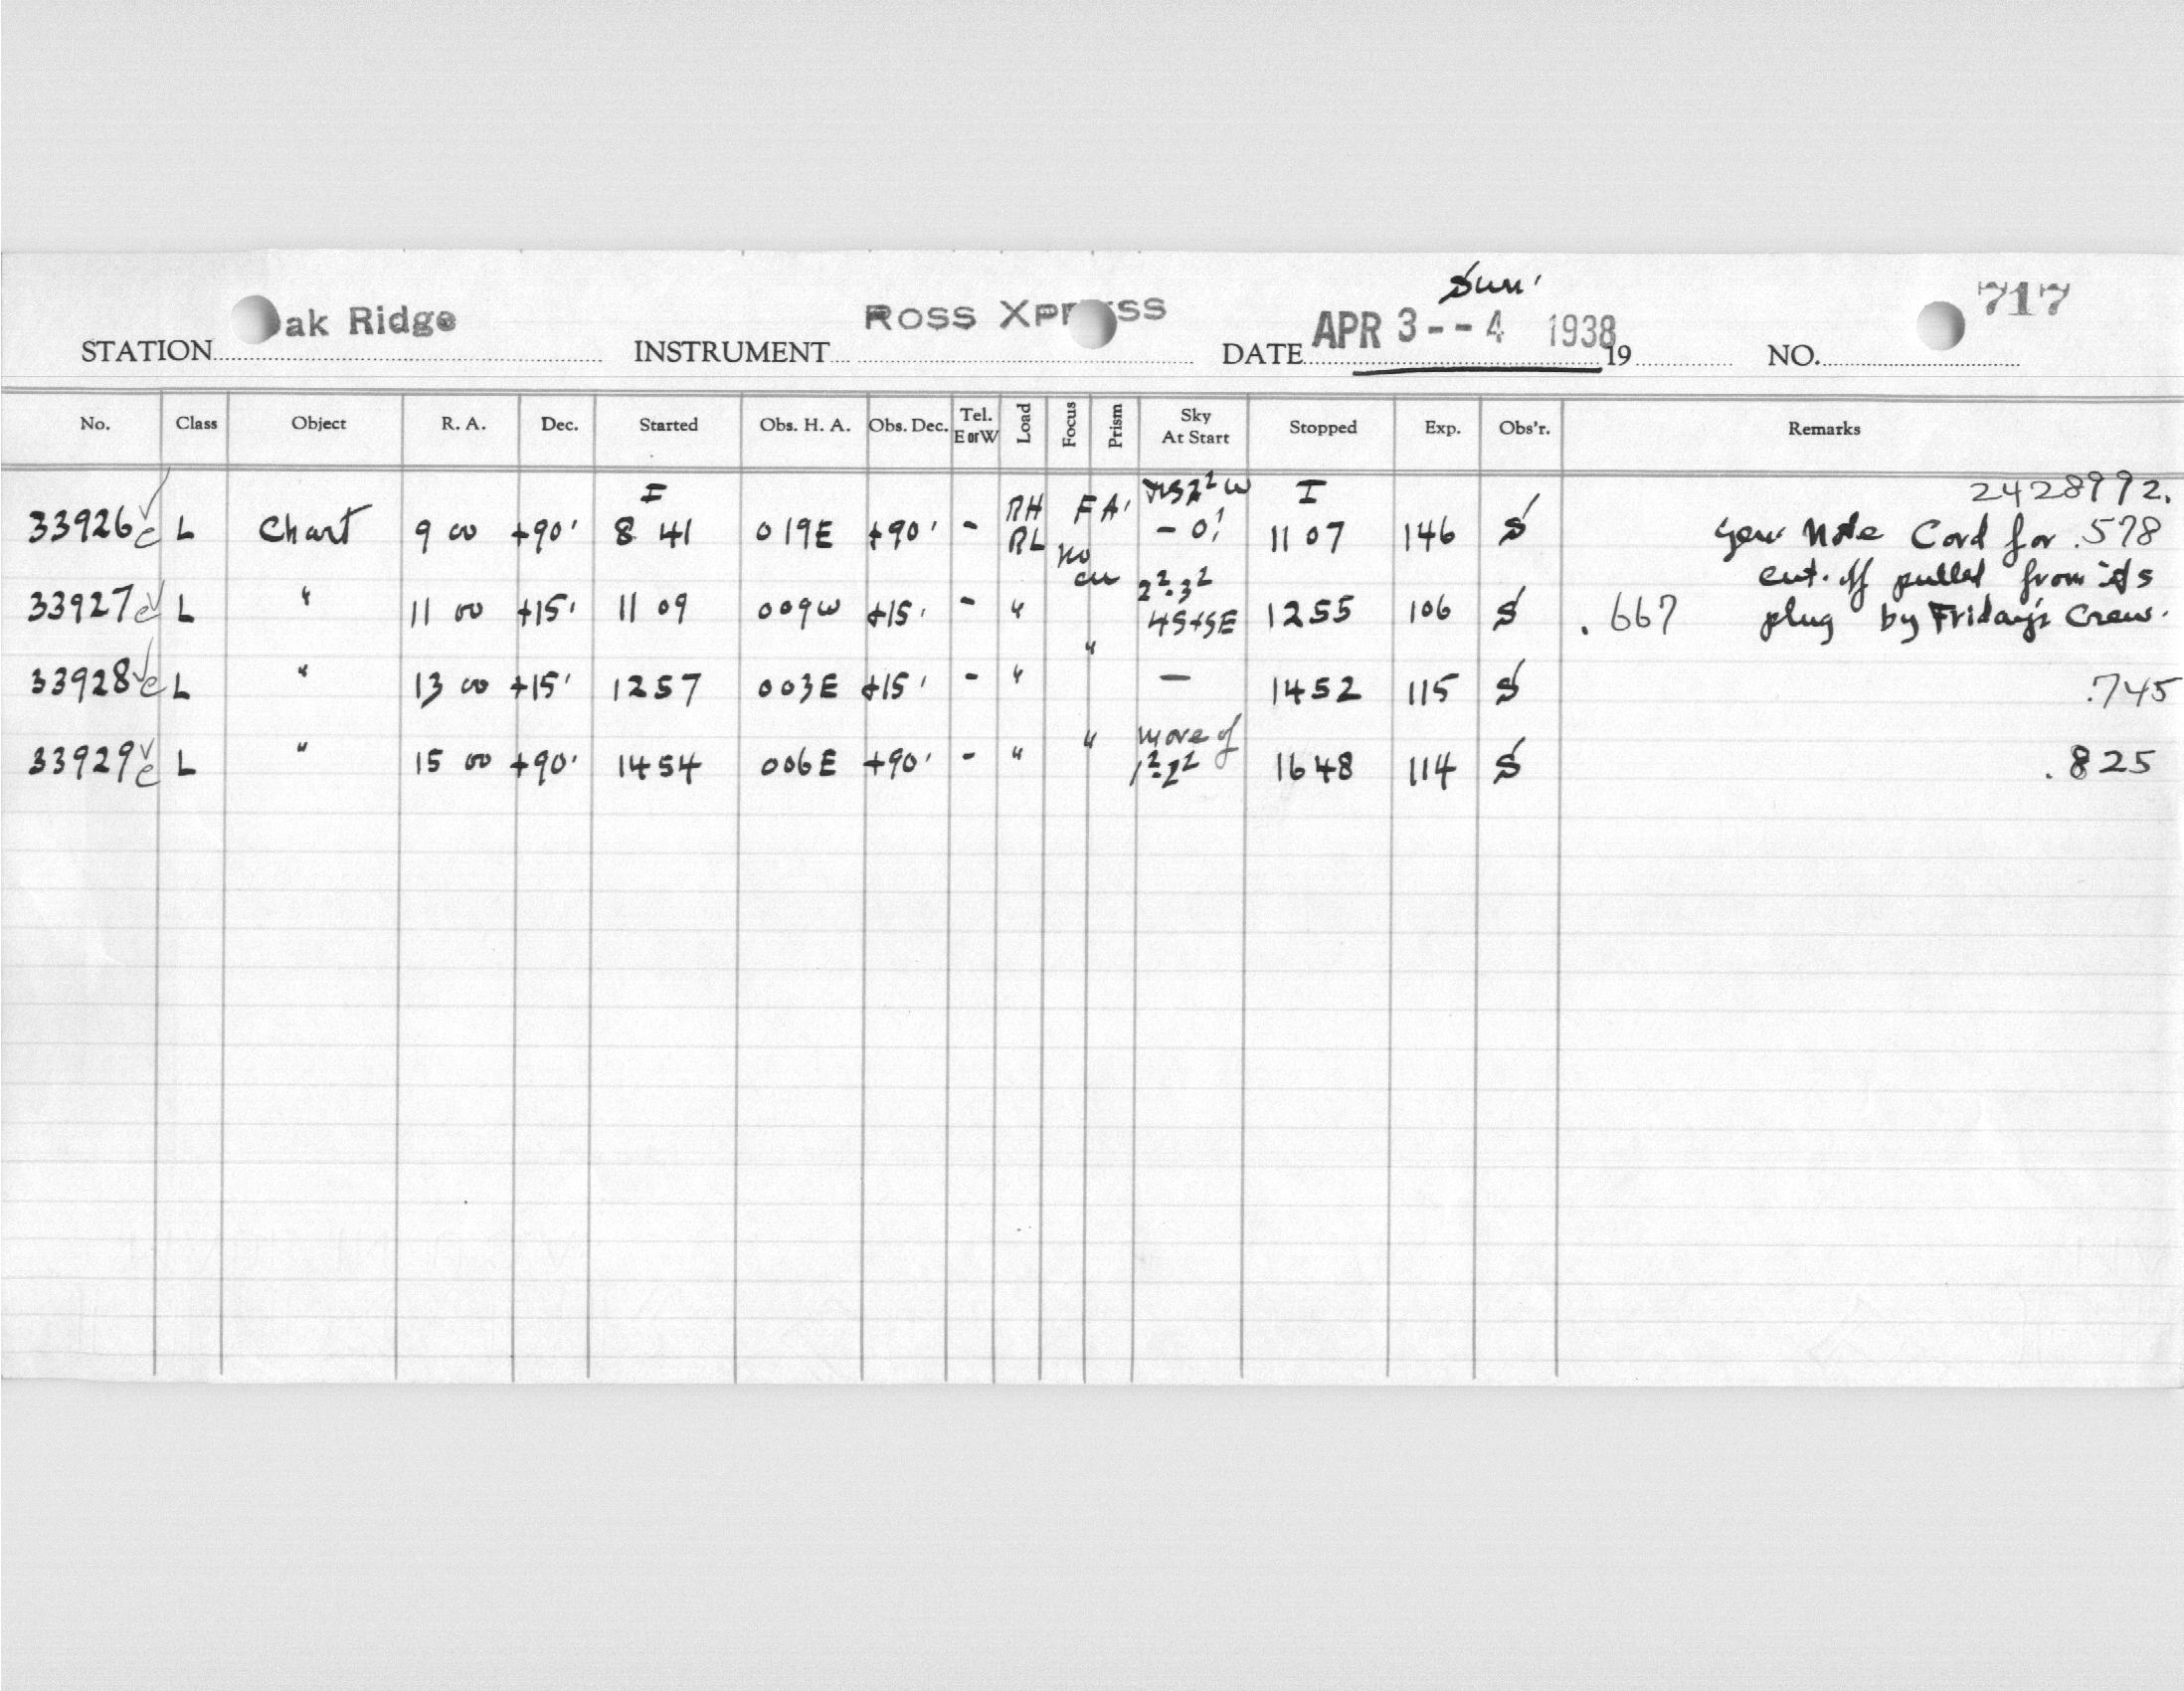 Sun'
ak Ridge ROSS XPr ss APR 3--4 1938 717
STATION INSTRUMENT DATE 19 NO.
No. Class Object R. A. Dec. Started Obs. H. A. Obs. Dec. Tel. E or W Load Focus Prism Sky At Start Stopped Exp. Obs'r. Remarks
I I 2428992.
33926 c L Chart 9 00 +90' 8 41 019E +90' - RH RL F A' - 0! 11 07 146 S Note Cord for .578
No cut-off pulled from its
33927 c L " 11 00 +15' 11 09 009W +15' - " 2²-3² 4S+SE 1255 106 S .667 plug by Friday's Crew.
33928 c L " 13 00 +15' 1257 003E +15' - " " — 1452 115 S .745
33929 c L " 15 00 +90' 1454 006E +90' - " " more of 1²-2² 1648 114 S .825